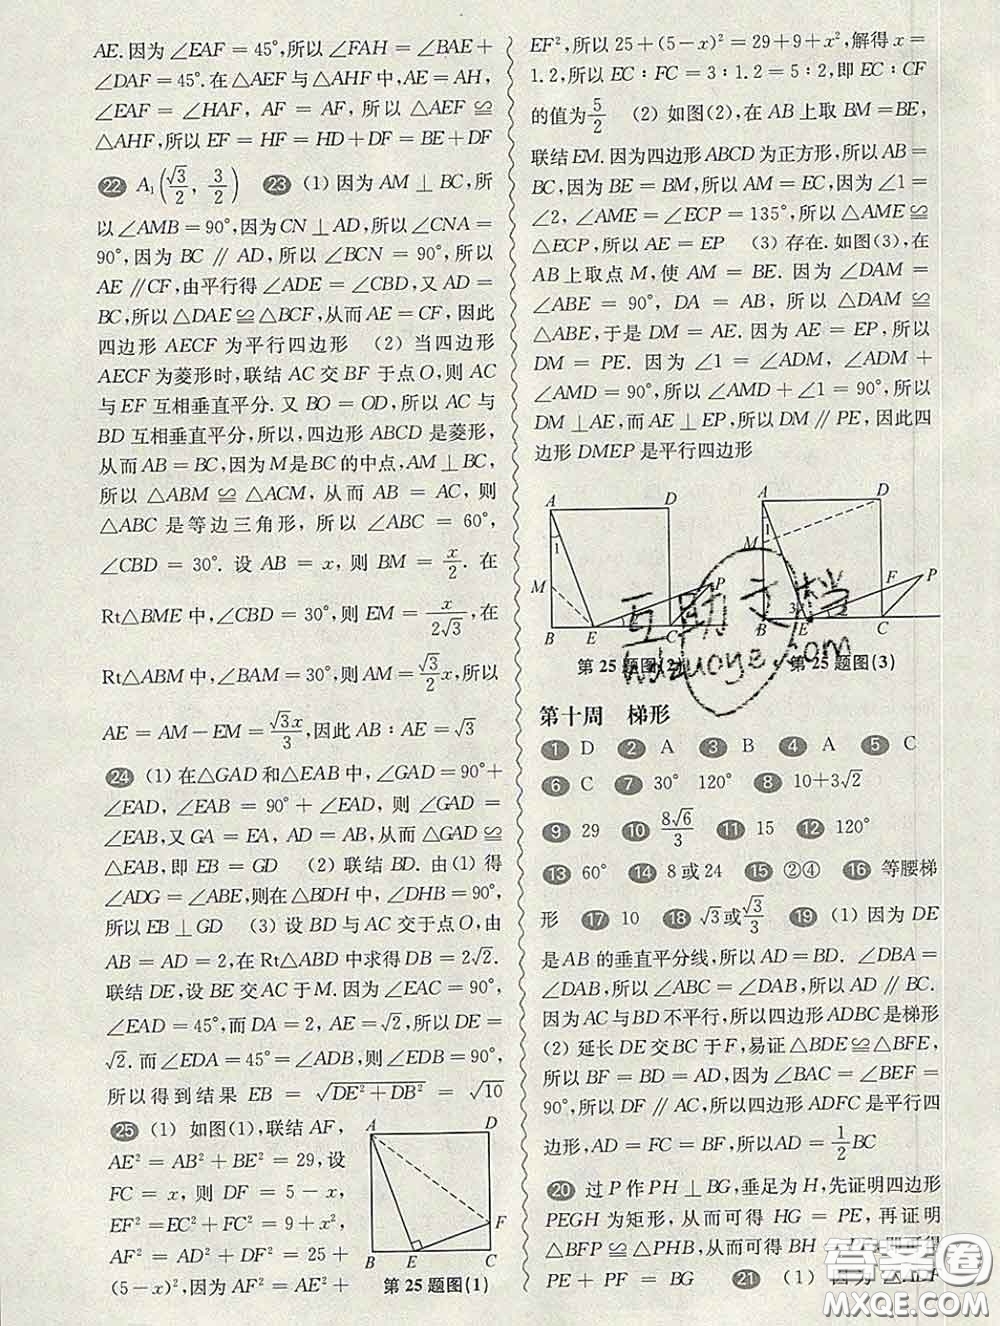 AE.因为∠EAF=45°,所以∠FAH=∠BAE+
∠DAF=45°.在△AEF与△AHF中,AE=AH,
∠EAF=∠HAF, AF=AF,所以△AEF≌
△AHF,所以EF=HF=HD+DF=BE+DF
22 A₁(√3/2, 3/2) 23 (1) 因为AM⊥BC,所
以∠AMB=90°,因为CN⊥AD,所以∠CNA=
90°,因为BC∥AD,所以∠BCN=90°,所以
AE∥CF,由平行得∠ADE=∠CBD,又AD=
BC,所以△DAE≌△BCF,从而AE=CF,因此
四边形AECF为平行四边形 (2) 当四边形
AECF为菱形时,联结AC交BF于点O,则AC
与EF互相垂直平分.又BO=OD,所以AC与
BD互相垂直平分,所以,四边形ABCD是菱形,
从而AB=BC,因为M是BC的中点,AM⊥BC,
所以△ABM≌△ACM,从而AB=AC,则
△ABC是等边三角形,所以∠ABC=60°,
∠CBD=30°.设AB=x,则BM=x/2.在
Rt△BME中,∠CBD=30°,则EM=x/(2√3),在
Rt△ABM中,∠BAM=30°,则AM=√3/2 x,所以
AE=AM-EM=√3x/3,因此AB:AE=√3
24 (1) 在△GAD和△EAB中,∠GAD=90°+
∠EAD,∠EAB=90°+∠EAD,则∠GAD=
∠EAB,又GA=EA, AD=AB,从而△GAD≌
△EAB,即EB=GD (2) 联结BD.由(1)得
∠ADG=∠ABE,则在△BDH中,∠DHB=90°,
所以EB⊥GD (3) 设BD与AC交于点O,由
AB=AD=2,在Rt△ABD中求得DB=2√2.
联结DE,设BE交AC于M.因为∠EAC=90°,
∠EAD=45°,而DA=2, AE=√2,所以DE=
√2.而∠EDA=45°=∠ADB,则∠EDB=90°,
所以得到结果EB=√(DE²+DB²)=√10
25 (1) 如图(1),联结AF,
AE²=AB²+BE²=29,设
FC=x,则DF=5-x,
EF²=EC²+FC²=9+x²,
AF²=AD²+DF²=25+
(5-x)²,因为AF²=AE²+
A D F B E C
第25题图(1)
EF²,所以25+(5-x)²=29+9+x²,解得x=
1.2,所以EC:FC=3:1.2=5:2,即EC:CF
的值为5/2 (2) 如图(2),在AB上取BM=BE,
联结EM.因为四边形ABCD为正方形,所以AB=
BC,因为BE=BM,所以AM=EC,因为∠1=
∠2,∠AME=∠ECP=135°,所以△AME≌
△ECP,所以AE=EP (3) 存在.如图(3),在
AB上取点M,使AM=BE.因为∠DAM=
∠ABE=90°, DA=AB,所以△DAM≌
△ABE,于是DM=AE.因为AE=EP,所以
DM=PE.因为∠1=∠ADM,∠ADM+
∠AMD=90°,所以∠AMD+∠1=90°,所以
DM⊥AE,而AE⊥EP,所以DM∥PE,因此四
边形DMEP是平行四边形
A D 1 M P B E C
A D 1 M F P 3 B E C
第25题图(2) 第25题图(3)
互助文档
huzuoye.com
第十周 梯形
1 D 2 A 3 B 4 A 5 C
6 C 7 30° 120° 8 10+3√2
9 29 10 8√6/3 11 15 12 120°
13 60° 14 8或24 15 ②④ 16 等腰梯
形 17 10 18 √3或√3/3 19 (1) 因为DE
是AB的垂直平分线,所以AD=BD.∠DBA=
∠DAB,所以∠ABC=∠DAB,所以AD∥BC.
因为AC与BD不平行,所以四边形ADBC是梯形
(2) 延长DE交BC于F,易证△BDE≌△BFE,
所以BF=BD=AD,因为∠BAC=∠BEF=
90°,所以DF∥AC,所以四边形ADFC是平行四
边形,AD=FC=BF,所以AD=1/2 BC
20 过P作PH⊥BG,垂足为H,先证明四边形
PEGH为矩形,从而可得HG=PE,再证明
△BFP≌△PHB,从而可得BH
PE+PF=BG 21 (1) 因为
答案圈
MXQE.COM